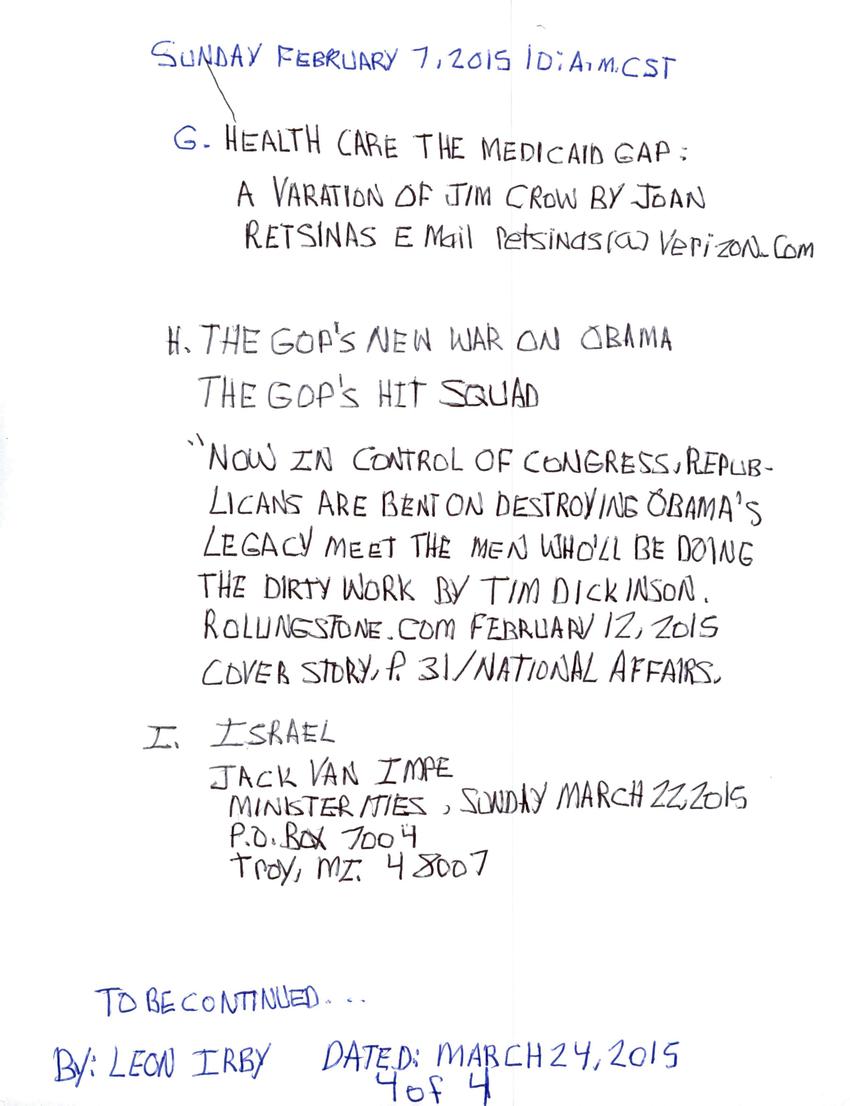 SUNDAY FEBRUARY 7, 2015 10:A.M.CST
G. HEALTH CARE THE MEDICAID GAP:
A VARATION OF JIM CROW BY JOAN
RETSINAS E Mail retsinas(a) Verizon.Com
H. THE GOP'S NEW WAR ON OBAMA
THE GOP'S HIT SQUAD
"NOW IN CONTROL OF CONGRESS, REPUB-
LICANS ARE BENT ON DESTROYING OBAMA'S
LEGACY MEET THE MEN WHO'LL BE DOING
THE DIRTY WORK BY TIM DICKINSON.
ROLLINGSTONE.COM FEBRUARY 12, 2015
COVER STORY, P. 31/NATIONAL AFFAIRS.
I. ISRAEL
JACK VAN IMPE
MINISTERITIES, SUNDAY MARCH 22, 2015
P.O. BOX 7004
TROY, MI. 48007
TO BE CONTINUED...
By: LEON IRBY DATED: MARCH 24, 2015
4 of 4